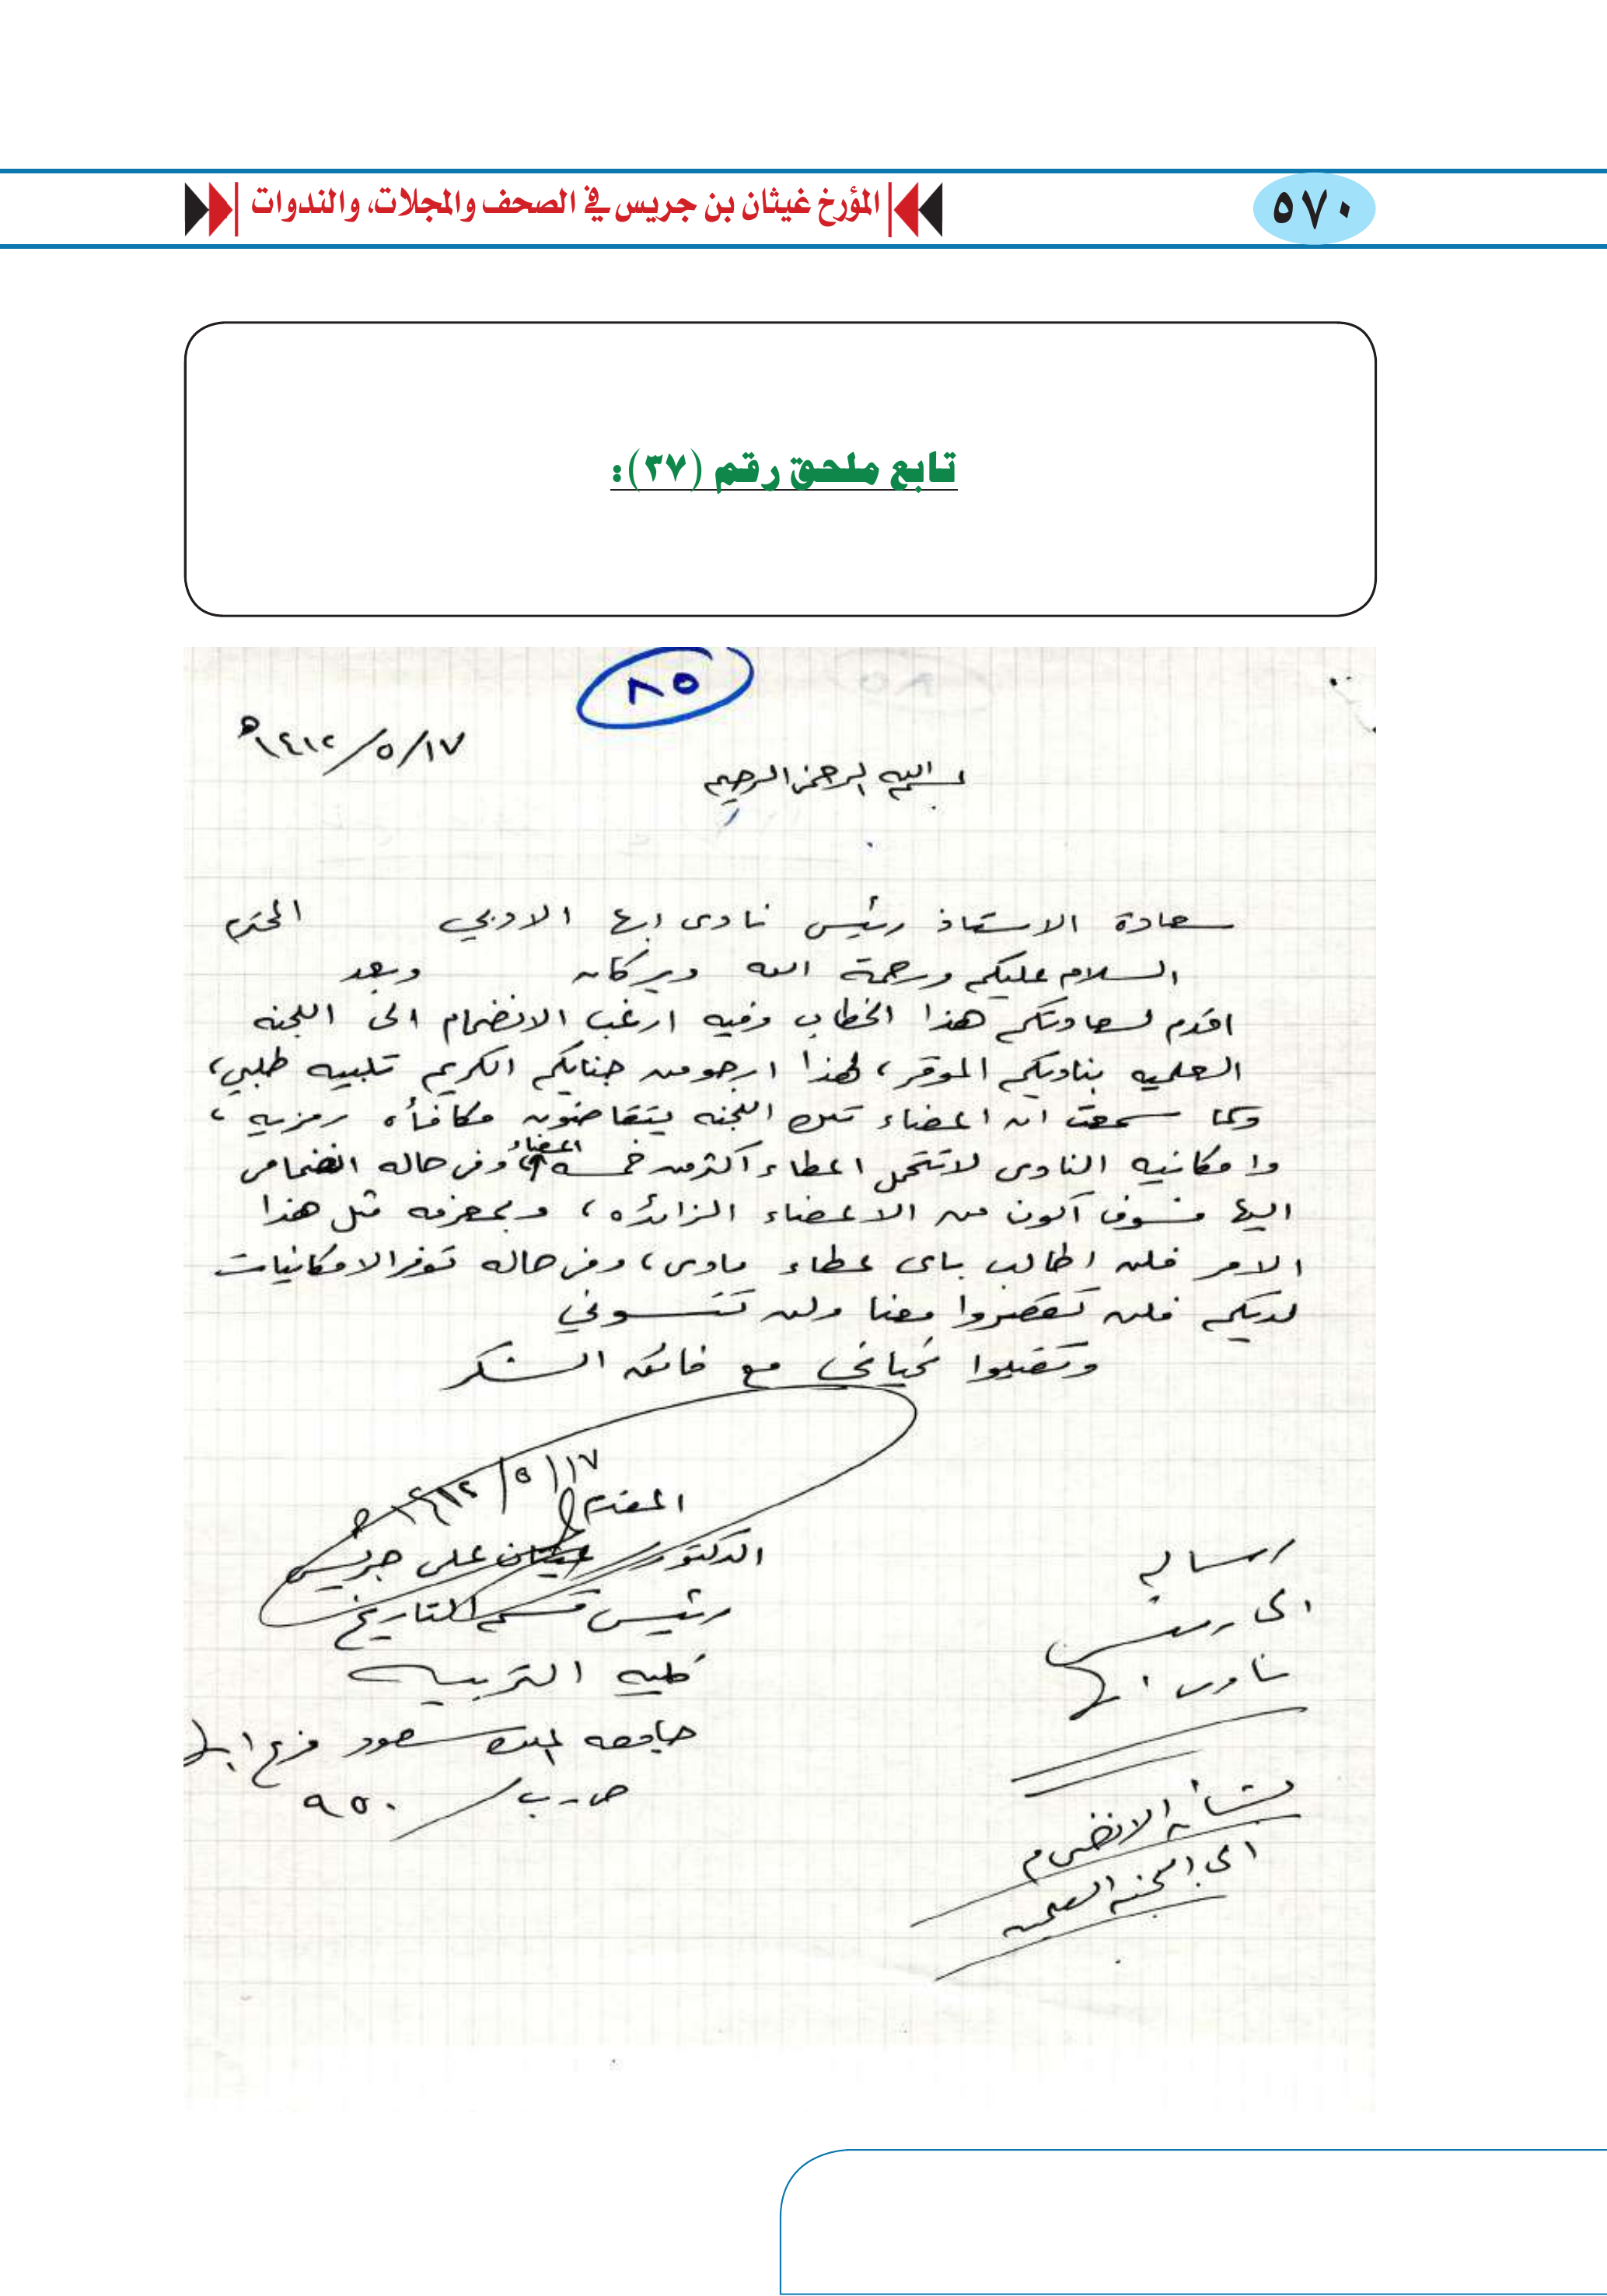 ٥٧٠
المؤرخ غيثان بن جريس في الصحف والمجلات، والندوات
تابع ملحق رقم (٣٧):
٨٥
١٤١٢/٥/١٧هـ
بسم الله الرحمن الرحيم
سعادة الاستاذ رئيس نادى ابها الادبي المحترم
السلام عليكم ورحمة الله وبركاته وبعد
اقدم لسعادتكم هذا الخطاب وفيه ارغب الانضمام الى اللجنه
العلميه بناديكم الموقر، لهذا ارجو من جنابكم الكريم تلبيه طلبي،
وكما سمعت ان اعضاء تلك اللجنه يتقاضون مكافأه رمزيه،
وامكانيه النادى لاتتحمل اعطاء اكثر من خمسه اعضاء وفى حاله انضمامى
اليها فسوف اكون من الاعضاء الزائده، وبمعرفه مثل هذا
الامر فلن اطالب باى عطاء مادى، وفى حاله توفر الامكانيات
لديكم فلن تقصروا معنا ولن تنسوني
وتقبلوا تحياتى مع فائق الشكر
١٤١٢/٥/١٧هـ
المقدم
الدكتور غيثان على جريس
رئيس قسم التاريخ
كليه التربيه
جامعه الملك سعود فرع ابها
ص.ب/ ٩٥٠
رساله
الى رئيس
نادى ابها
بشأن الانضمام
الى اللجنه العلميه